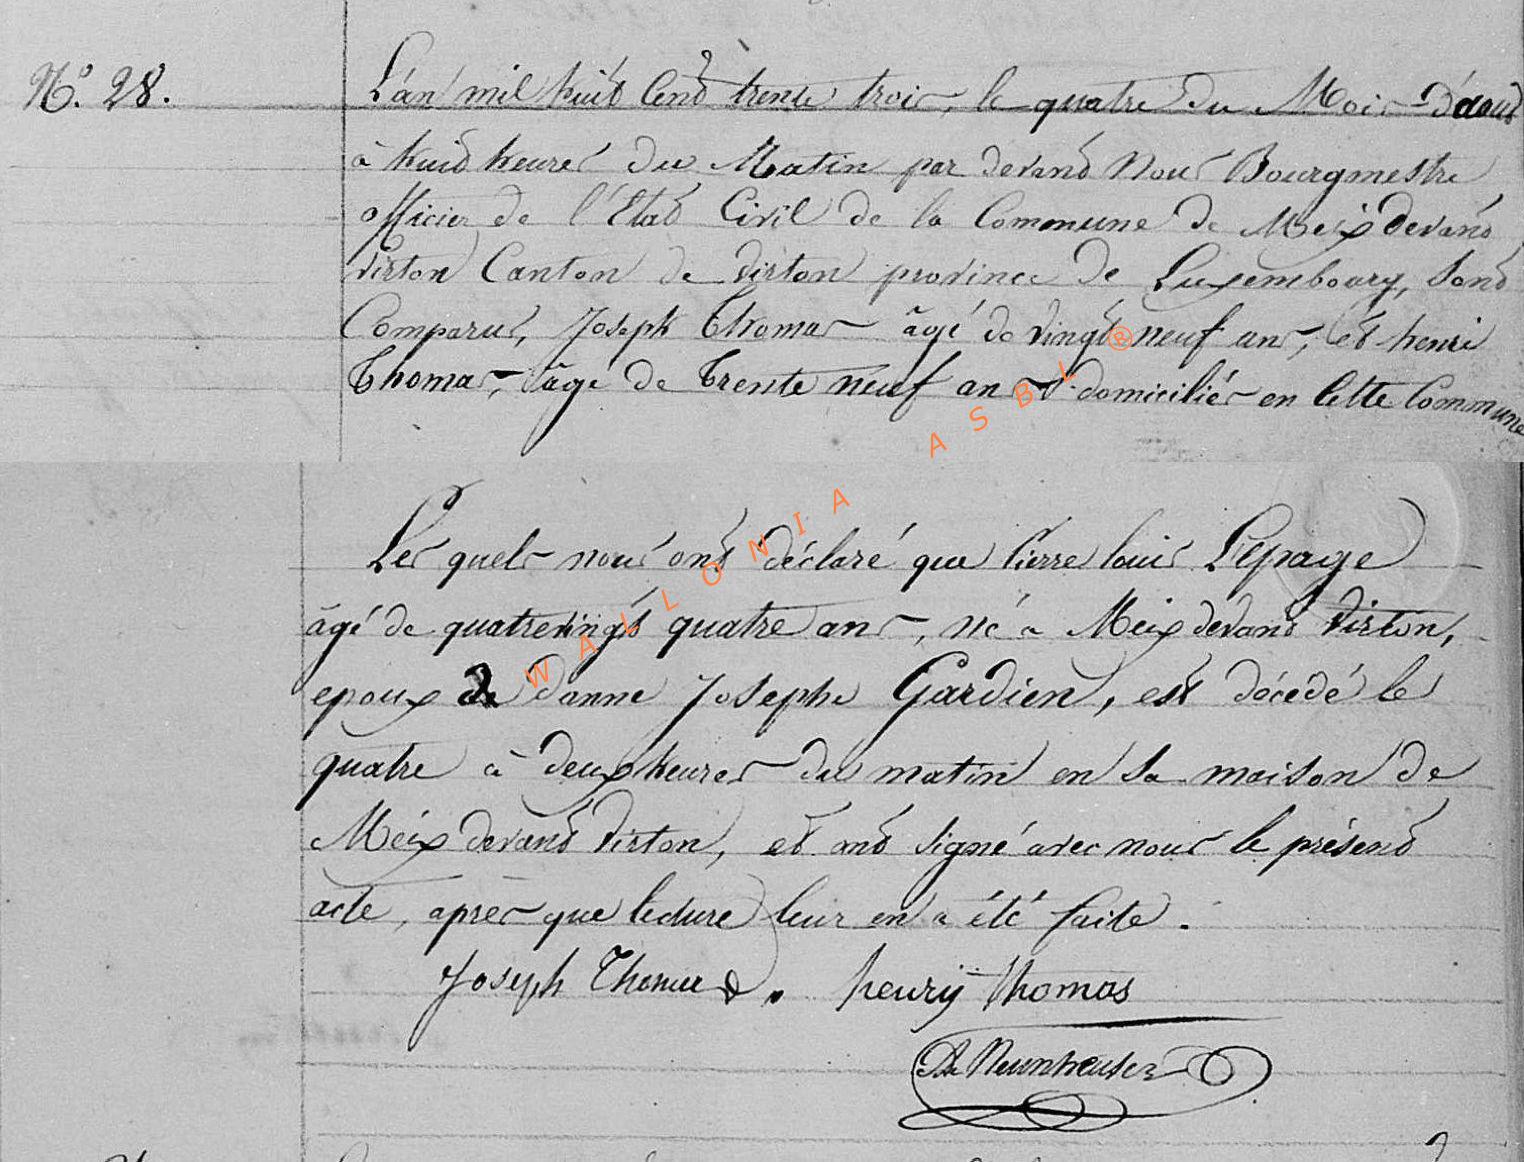 N.o 28.
L'an mil huit Cent trente trois, le quatre du Mois D'aout
à huit heures du Matin par devant Nous Bourgmestre
officier de l'Etat Civil de la Commune de Meix devant
Virton Canton de Virton province de Luxembourg, Sont
Comparus, Joseph Thomas âgé de vingt neuf ans, et henri
Thomas, âgé de Trente neuf ans domiciliés en Cette Commune
Les quels nous ont déclaré que Pierre louis Lepage
âgé de quatrevingt quatre ans, né a Meix devant Virton,
epoux de d'anne Josephe Gardien, est décédé le
quatre à deux heures du matin en Sa maison de
Meix devant Virton, et ont signé avec nous le présent
acte, après que lecture leur en a été faite.
Joseph Thomas. henry thomas
Neunheuser
WALLONIA ASBL ®